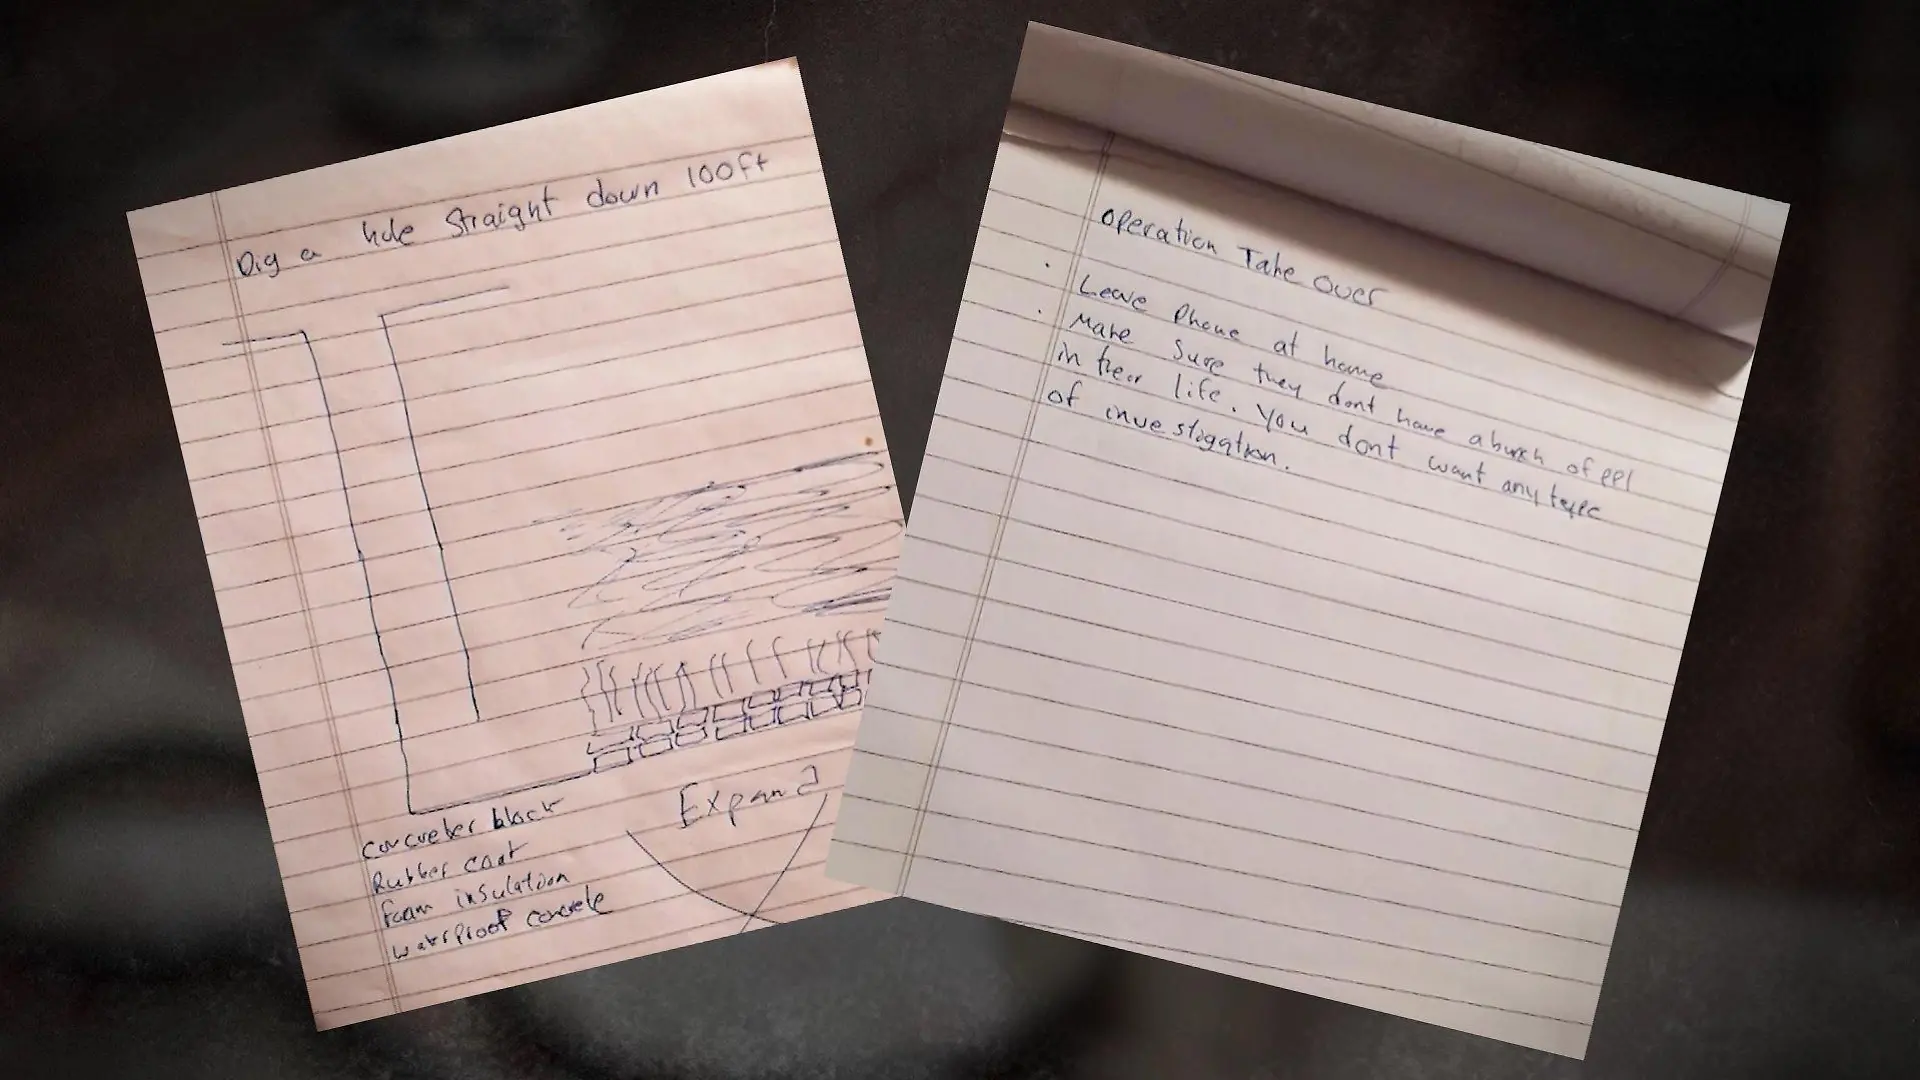 Dig a hole Straight down 100ft
Expand
concreter block
Rubber coat
foam insulation
waterproof concrete
Operation Take Over
· Leave Phone at home
· Make Sure they dont have a bunch of ppl
in their life. You dont want any type
of investigation.